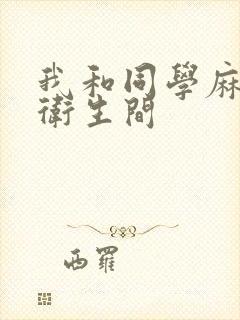 我和同學麻
衛生間
西羅